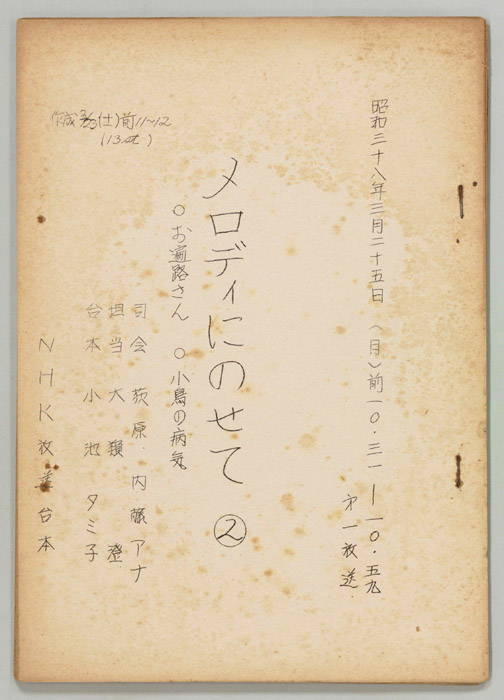 昭和三十八年三月二十五日 (月)前一〇・三一―一〇・五九
第一放送
メロディにのせて ②
○お遍路さん ○小鳥の病気
司会 荻原・内藤アナ
担当 大額 澄
台本 小池タミ子
NHK放送台本
作成3/23(土)前11~12
(13st)